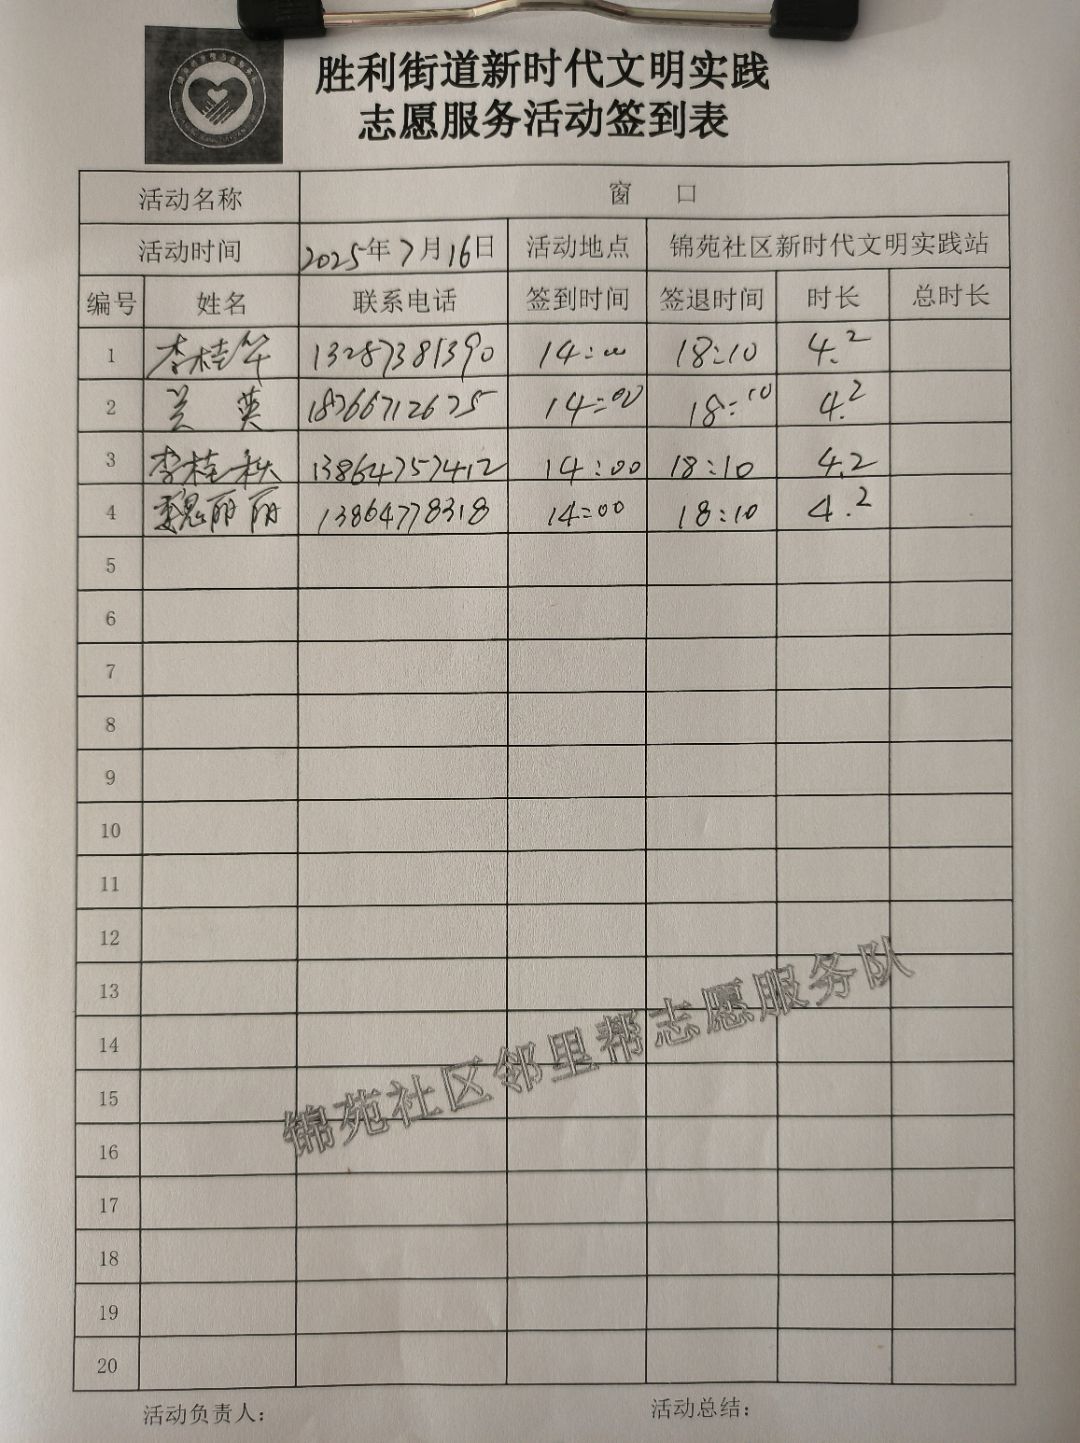 胜利街道新时代文明实践
志愿服务活动签到表
活动名称 窗 口
活动时间 2025年7月16日 活动地点 锦苑社区新时代文明实践站
编号 姓名 联系电话 签到时间 签退时间 时长 总时长
1 李桂华 13287381390 14:00 18:10 4.2
2 兰 英 18266712675 14:00 18:10 4.2
3 李桂秋 13864757412 14:00 18:10 4.2
4 魏丽丽 13864778318 14:00 18:10 4.2
5
6
7
8
9
10
11
12
13
14
15
16
17
18
19
20
锦苑社区邻里帮志愿服务队
活动负责人: 活动总结: